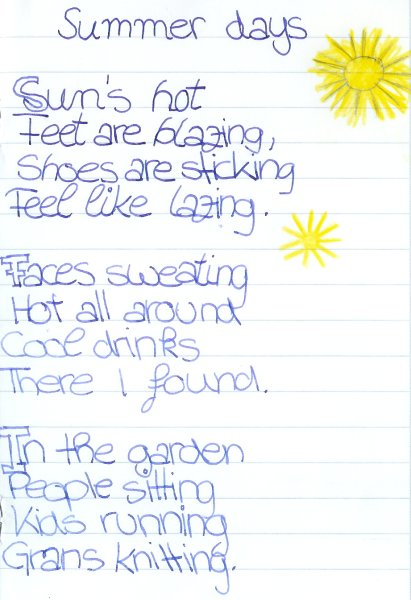 Summer days
Sun's hot
Feet are blazing,
Shoes are sticking
Feel like lazing.
Faces sweating
Hot all around
Cool drinks
There I found.
In the garden
People sitting
Kids running
Grans knitting.